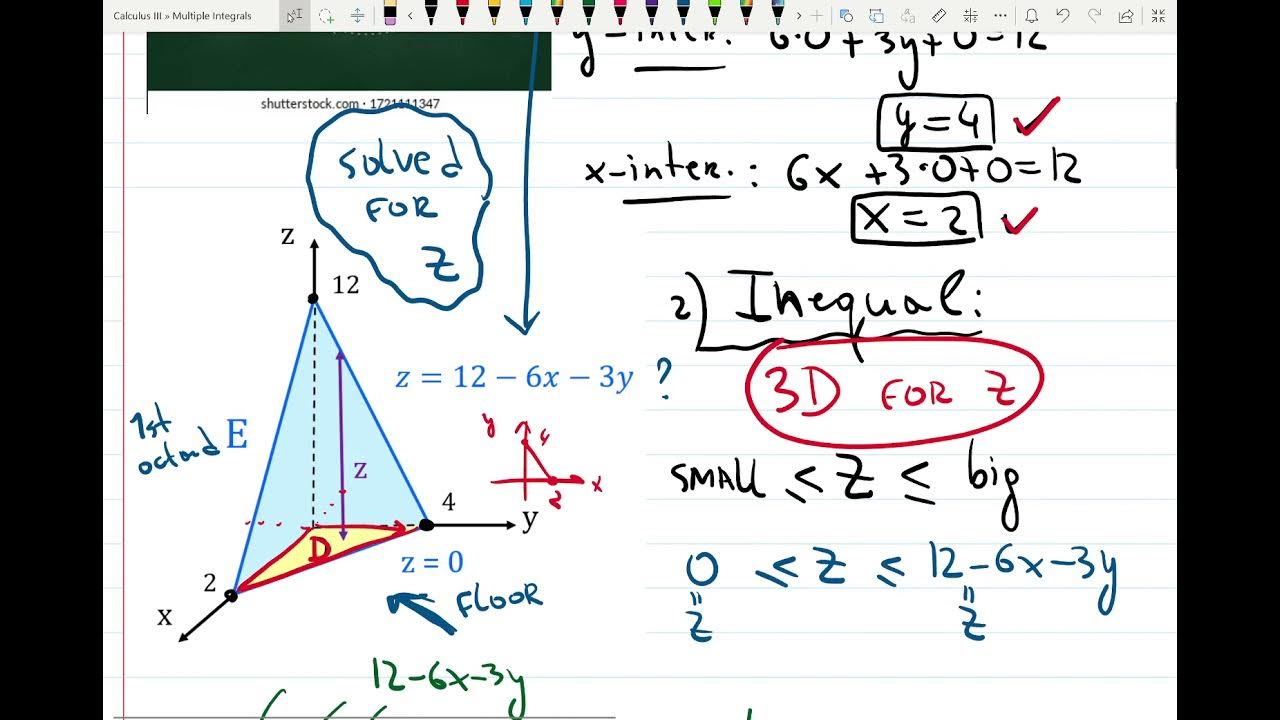 Calculus III » Multiple Integrals
y-inter. 6·0+3y+0=12
shutterstock.com · 1721111347
y=4 ✓
solved
FOR
z
x-inter.: 6x+3·0+0=12
x=2 ✓
z
12
2) Inequal:
z = 12 − 6x − 3y ?
3D FOR z
1st
octand
E
y
4
x
2
z
SMALL ≤ z ≤ big
4
y
D
z = 0
0 ≤ z ≤ 12-6x-3y
=
z
=
z
2
x
FLOOR
12-6x-3y